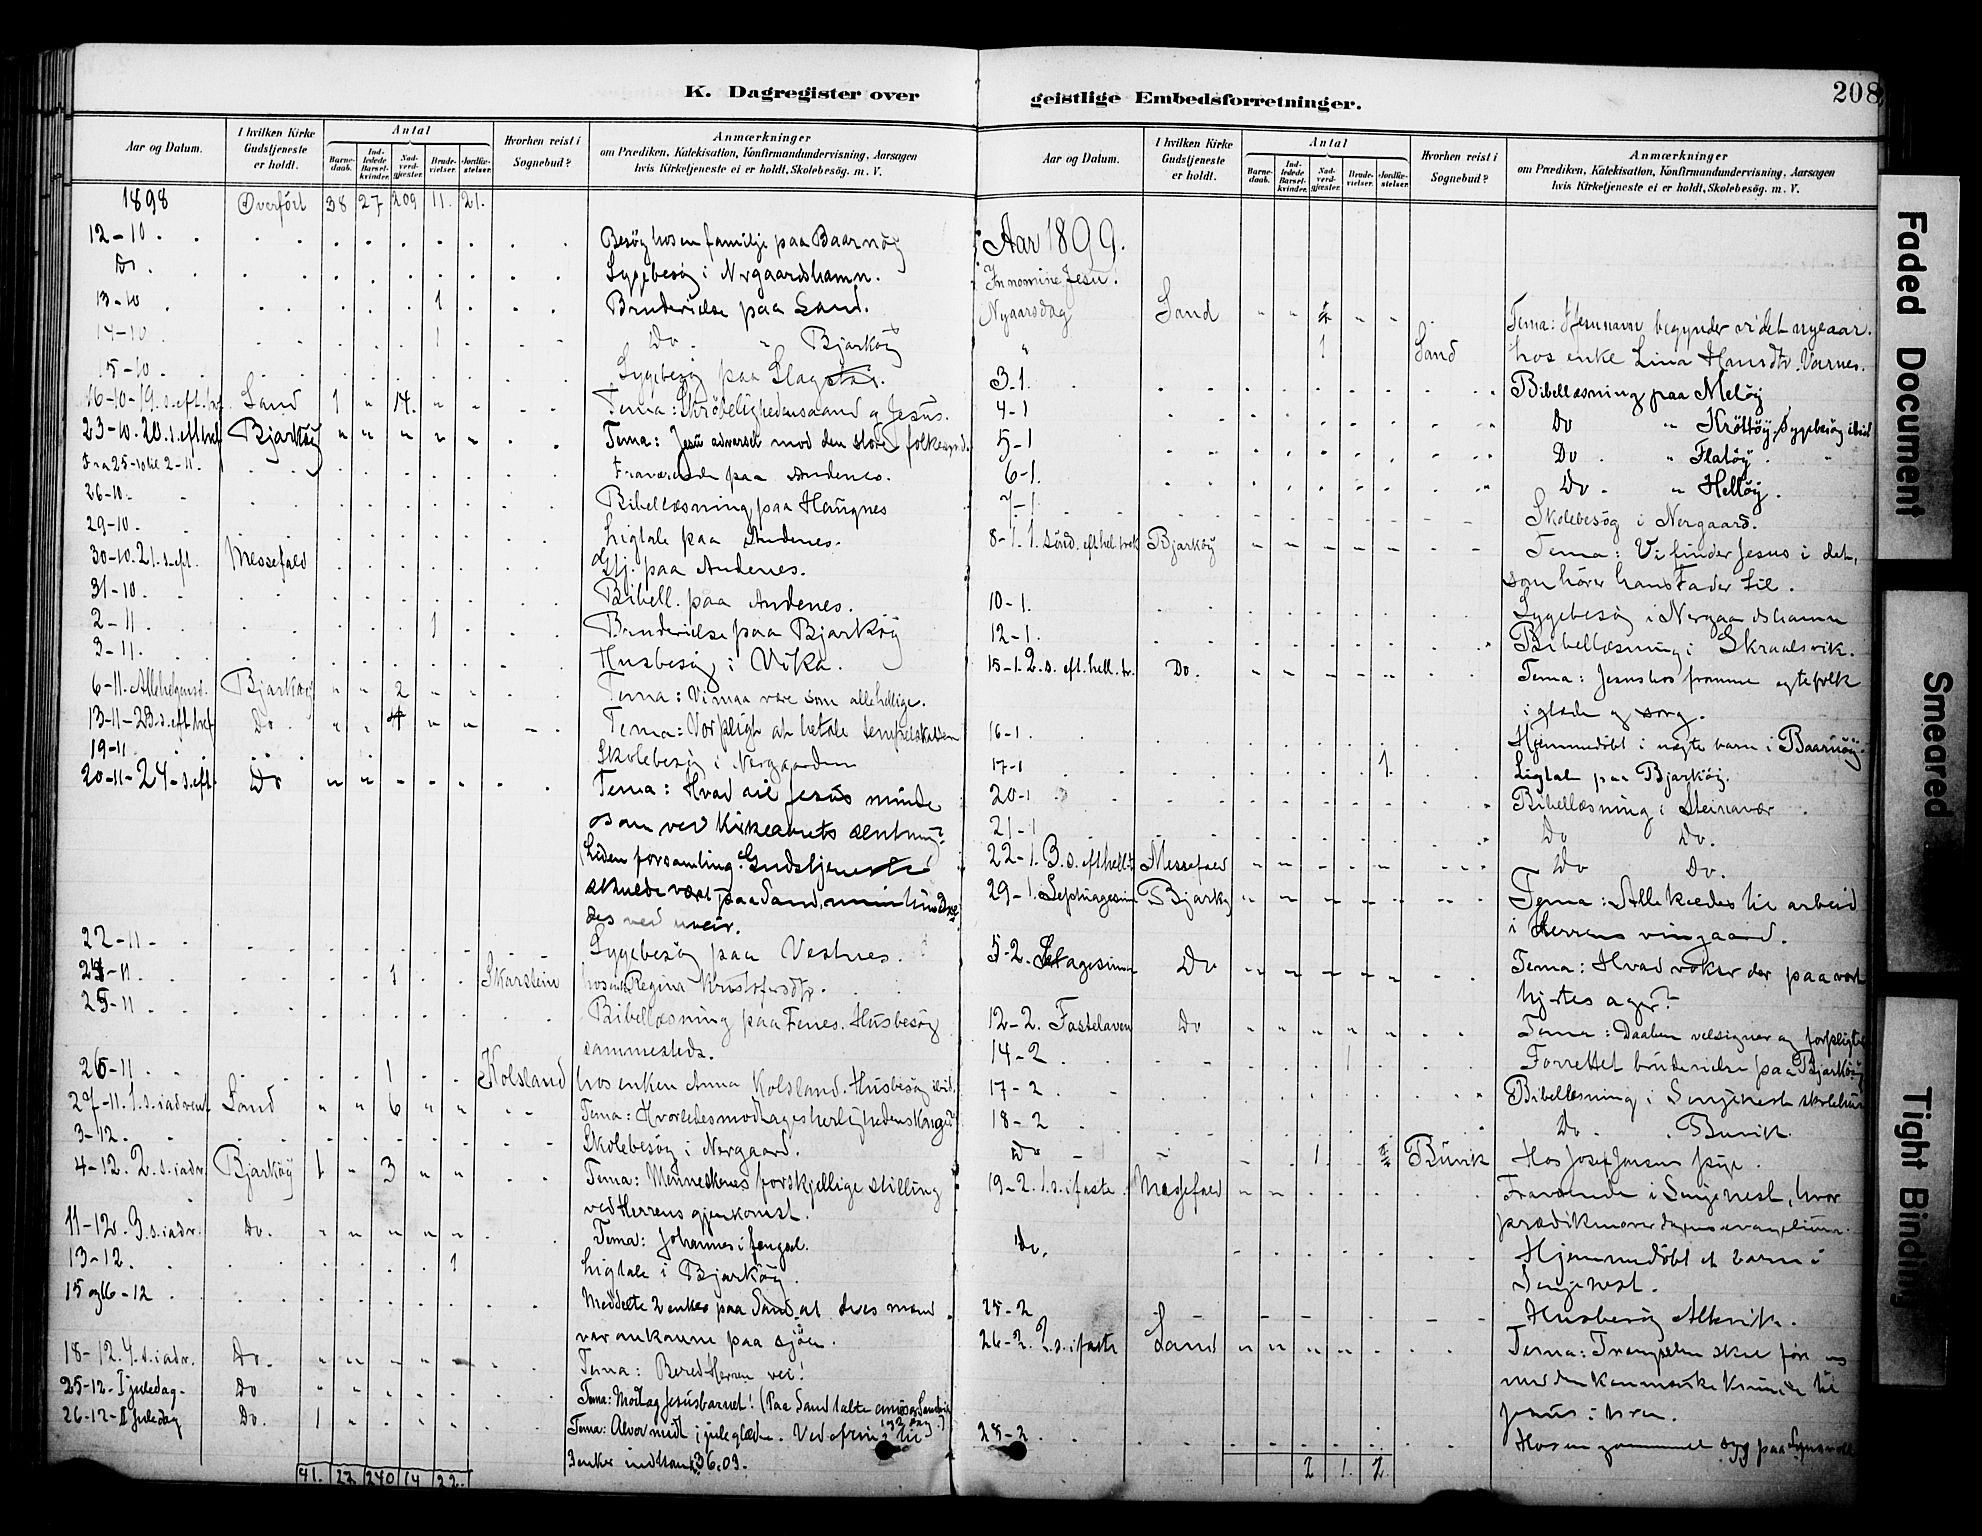 K. Dagregister over
Aar og Datum.
I hvilken Kirke Gudstjeneste er holdt.
Antal
Barne-daab.
Ind-ledede Barsel-kvinder.
Nad-verd-gjæster.
Brude-vielser.
Jordfæ-stelser.
Hvorhen reist i Sognebud?
Anmærkninger
om Prædiken, Katekisation, Konfirmandundervisning, Aarsagen
hvis Kirketjeneste ei er holdt, Skolebesög. m. V.
1898 Overfört 38 27 209 11. 21.
12-10. Besög hos en familje paa Baarnöy
Do. Sygebesög i Nergaardshamn.
13-10 1 Brudevielse paa Sand.
14-10. 1 Do. " Bjarköy
15-10. Sygebesög paa Slagstad.
16-10-19. s. eft. tref. Sand 1 " 14. " " Tema: Skröbelighedens aand og Jesus.
23-10. 20. s. eft tref Bjarköy " " " " " Tema: Jesu advarsel mod den store folkesynd.
Fra 25-10 til 2-11. Fraværende paa Andenes.
26-10. Bibellæsning paa Haugnes
29-10. Ligtale paa Andenes.
30-10. 21. s. eft. Messefald Gtj. paa Andenes.
31-10. Bibell. paa Andenes.
2-11. 1 Brudevielse paa Bjarköy
3-11. Husbesög i Vika.
6-11. Allehelgensd. Bjarköy " " 2 " " Tema: Vi maa være som alle hellige.
13-11-23. s. eft. tref Do. " " 4 " " Tema: Vor pligt at betale tempelskatten
19-11. Skolebesög i Nergaarden
20-11-24-s. eft. Do " " Tema: Hvad vil Jesus minde
os om ved kirkeaarets slutning?
(Liden forsamling. Gudstjeneste
skulde vært paa Sand, men hindre-
des ved uveir.
22-11- Sygebesög paa Vestnes.
24-11. 1 Skarstein hos enke Regina Kristofersdtr.
25-11 Bibellæsning paa Fenes. Husbesög
sammesteds.
26-11 1 Kolsland hos enken Anna Kolsland. Husbesög ibid.
27-11. 1. s. i advent Sand " " 6 " " Tema: Hvorledes modtages herlighedens Konge?
3-12. Skolebesög i Nergaard.
4-12. 2. s. i adv. Bjarköy 1 " 3 " " Tema: Menneskenes forskjellige stilling
ved Herrens gjenkomst.
11-12. 3. s. i adv. Do. " " " " " Tema: Johannes i fengsel.
13-12. 1 Ligtale i Bjarköy.
15 og 16-12 Meddelte 2 enker paa Sand at deres mænd
var omkomne paa sjöen.
18-12. 4. s. i adv. Do. " " " " Tema: Bered Herren vei!
25-12-I juledag. Do Tema: Modtag Jesusbarnet! (Paa Sand talte
26-12-II juledag Do. 1 Tema: Alvor midt i juleglæden. Ved
3 enker indkom 36.03.
41. 27. 240 14 22.
geistlige Embedsforretninger.
208
Aar og Datum.
I hvilken Kirke Gudstjeneste er holdt.
Antal
Barne-daab.
Ind-ledede Barsel-kvinder.
Nad-verd-gjæster.
Brude-vielser.
Jordfæ-stelser.
Hvorhen reist i Sognebud?
Anmærkninger
om Prædiken, Katekisation, Konfirmandundervisning, Aarsagen
hvis Kirketjeneste ei er holdt, Skolebesög. m. V.
Aar 1899.
In nomine Jesu!
Nyaarsdag Sand Tema: I Jesu navn begynder vi det nye aar.
" 1 Sand hos enke Lina Hansdtr. Varnes.
3-1. Bibellæsning paa Melöy
4-1 Do " Kröttöy, Sygebesög ibid
5-1 Do. " Flatöy.
6-1. Do. " Helløy.
7-1 Skolebesög i Nergaard.
8-1. 1. Sönd. eft. hel. trek Bjarköy Tema: Vi finder Jesus i det,
som hörer hans Fader til.
10-1. Sygebesög i Nergaardshamn
12-1. Bibellæsning i Skraalsvik.
15-1. 2. s. eft. hell. tr. Do. Tema: Jesus hos fromme egtefolk
i glæde og sorg.
16-1. Hjemmedöbt i uægte barn i Baarnöy.
17-1 1. Ligtale paa Bjarköy.
20-1 Bibellæsning i Steinavær
21-1 Do Do.
22-1. 3. s. eft hell. t. Messefald Do Do.
29-1. Septuagesima Bjarköy Tema: Alle kaldes til arbeid
i Herrens vingaard.
5-2. Sexagesima Do Tema: Hvad vokser der paa vort
hjertes ager?
12-2. Fastelaven Do Tema: Daaben velsigner og forpligter
14-2 1 Forrettet brudevielse paa Bjarköy
17-2 Bibellæsning i Senjenest skolehus
18-2 Do. Buvik.
Do 1. Buvik Hos Josef Jensens pige.
19-2. 1. s. i faste. Messefald Fraværende i Senjenest, hvor
prædiken over dagens evangelium.
Do. Hjemmedöbt et barn i
Senjenest.
25-2 Husbesög Altevik.
26-2. 2. s. i faste Sand Tema: Trængselen skal före os
med den kananæiske kvinde til
Jesus i bön.
28-2. Hos en gammel syg paa
2 1. 2.
Faded Document
Smeared
Tight Binding